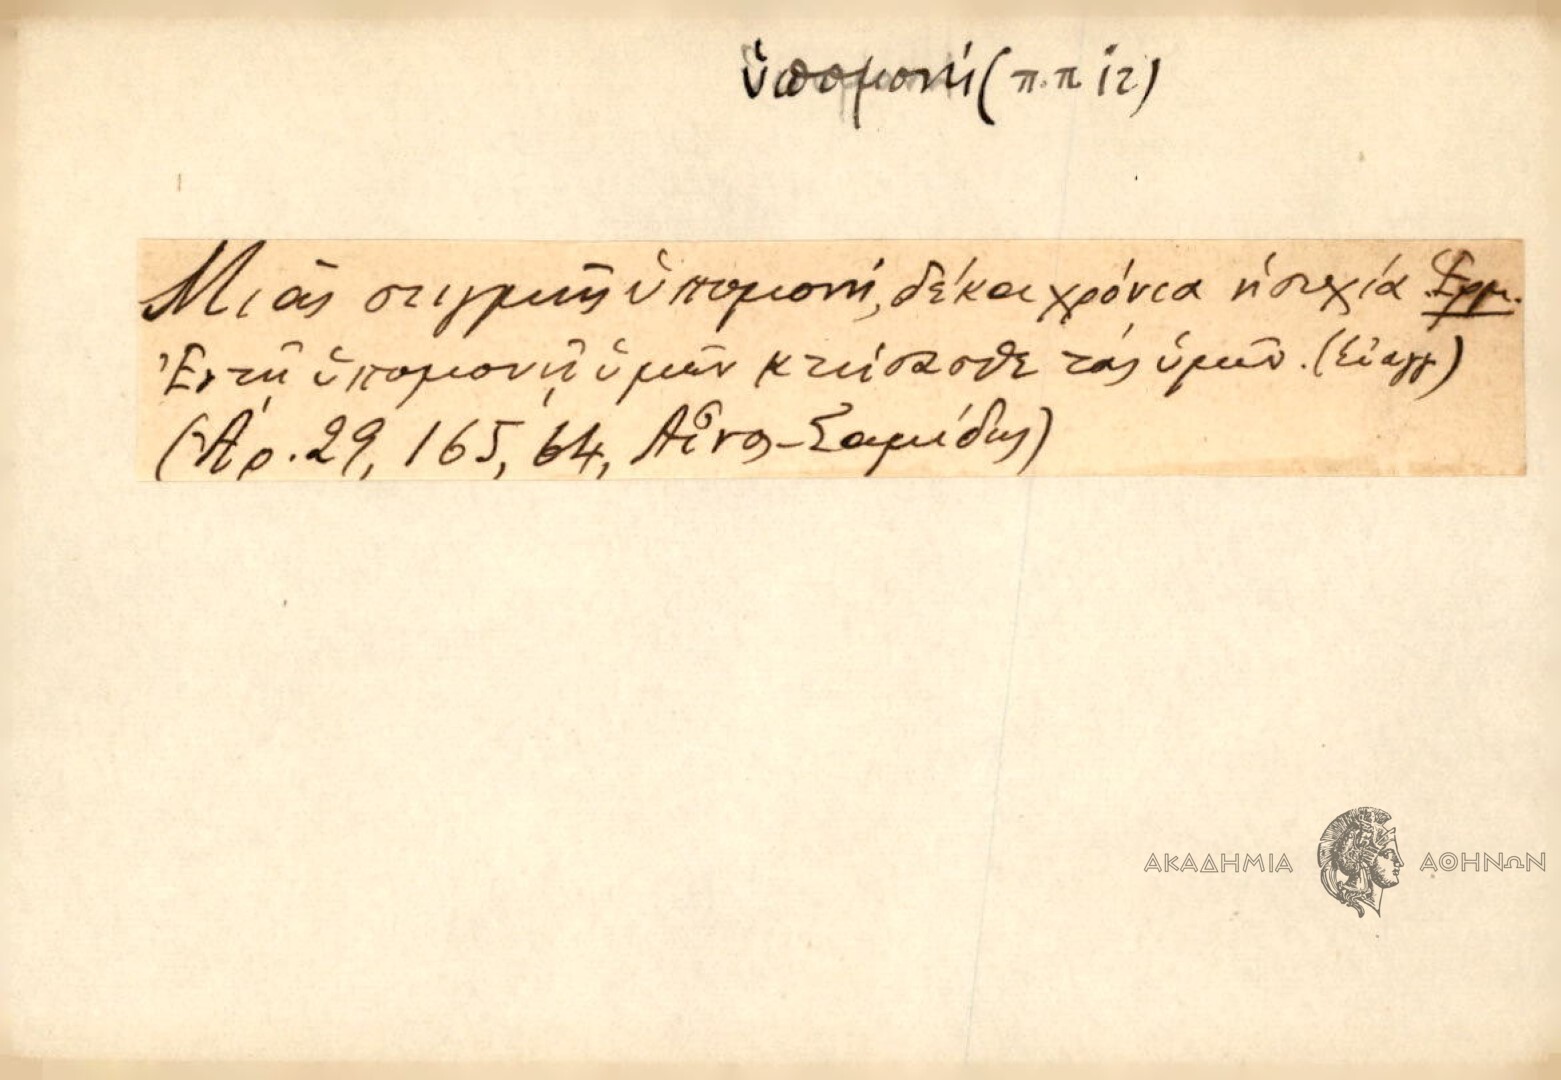 ὑπομονή (π.π ις)
Μιᾶς στιγμῆς ὑπομονή, δέκα χρόνια ἡσυχία Ἑρμ.
Ἐν τῇ ὑπομονῇ ὑμῶν κτήσασθε τὰς ὑμῶν. (Εὐαγγ)
(Ἀρ. 29, 165, 64, Αἶνος-Σαμίδης)
ΑΚΑΔΗΜΙΑ ΑΘΗΝΩΝ